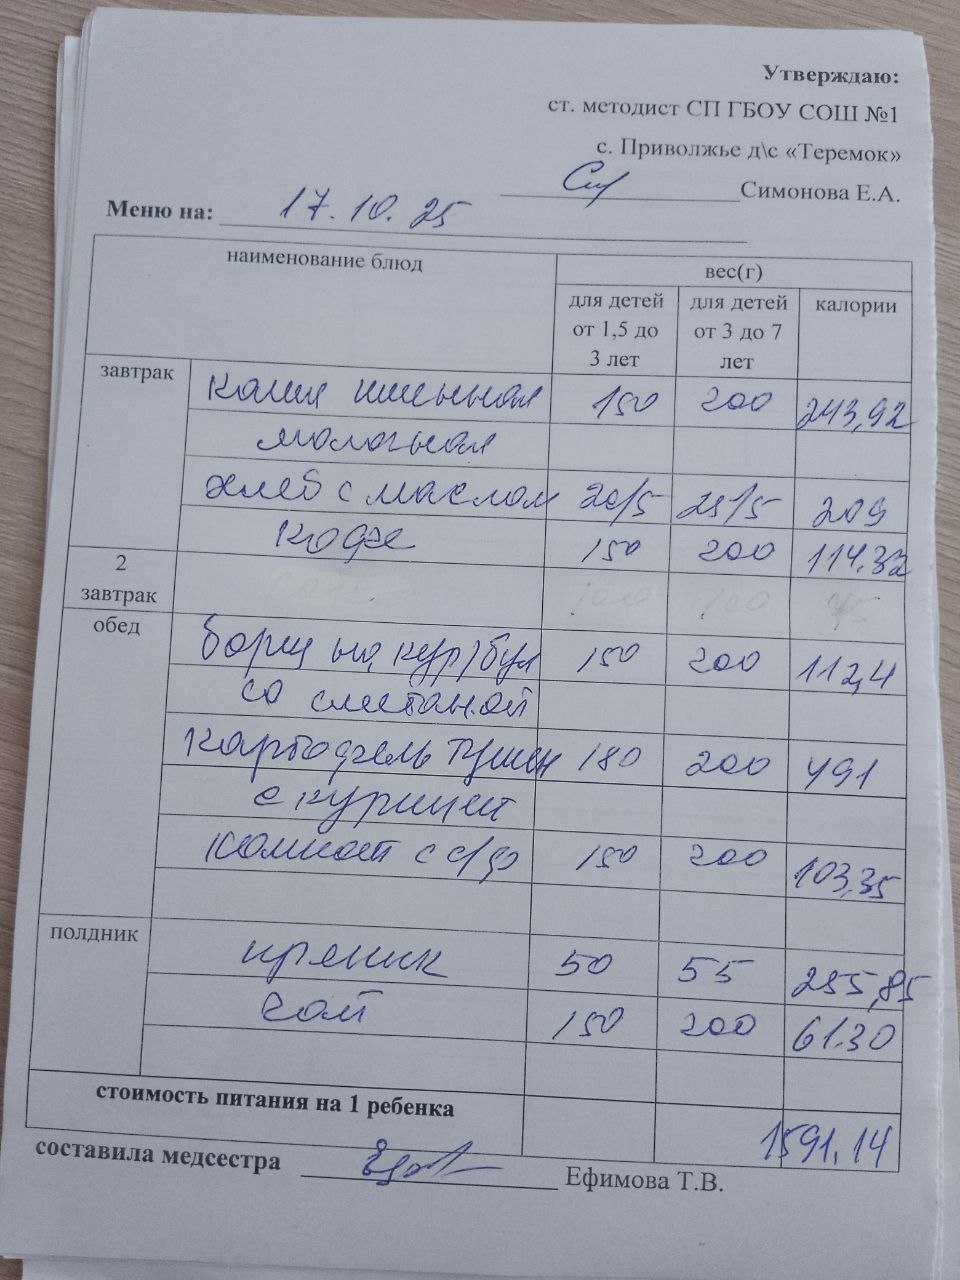 Утверждаю:
ст. методист СП ГБОУ СОШ №1
с. Приволжье д\с «Теремок»
Симонова Е.А.
Меню на: 17.10.25
наименование блюд вес(г)
для детей от 1,5 до 3 лет для детей от 3 до 7 лет калории
завтрак каша пшенная 150 200 243,92
молочная
хлеб с маслом 20/5 25/5 209
кофе 150 200 114.32
2 завтрак сок 100 100 45
обед борщ на кур/бул 150 200 112,4
со сметаной
картофель тушен 180 200 491
с курицей
компот с с/ф 150 200 103,35
полдник пряник 50 55 255,85
чай 150 200 61.30
стоимость питания на 1 ребенка 1591.14
составила медсестра Ефимова Т.В.